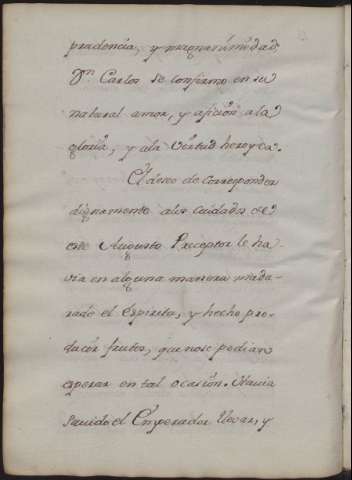 prudencia, y magnanimidad,
Dn. Carlos se confirmo en su
natural amor, y aficion a la
gloria, y ala virtud heroyca.
El deseo de corresponder
dignamente alos cuidados de
este Augusto Preceptor le ha-
via en alguna manera madu-
rado el Espiritu, y hecho pro-
ducir frutos, que nose podian
esperar en tal ocasion. Havia
savido el Emperador llevar, y